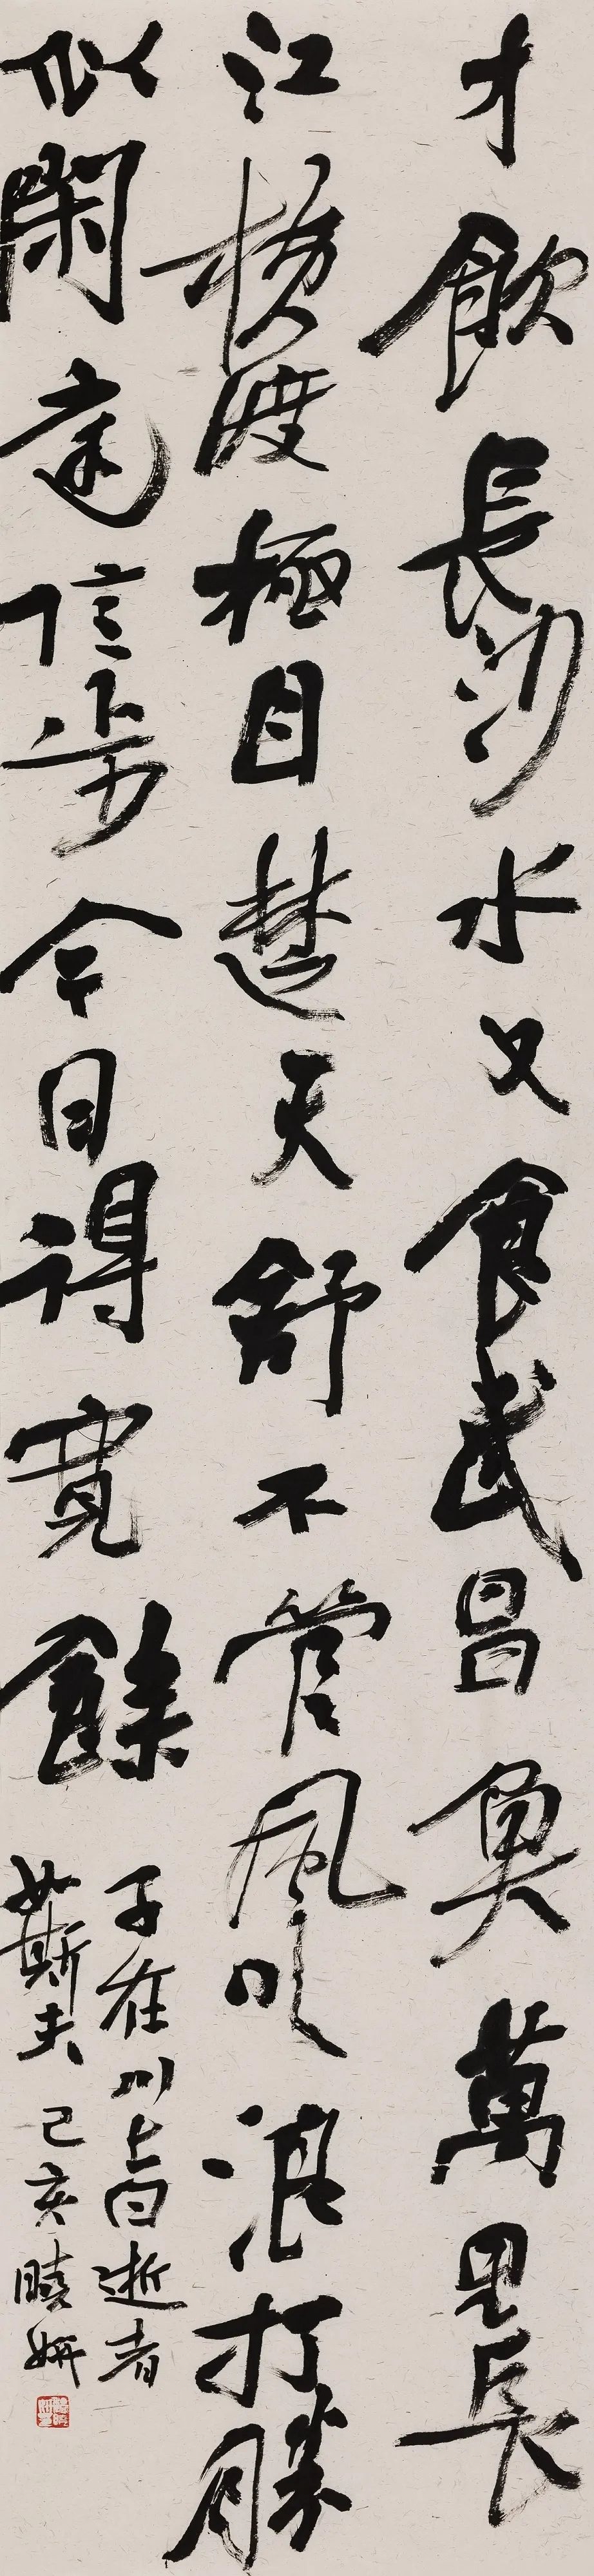 才飲長沙水又食武昌魚萬里長
江橫渡極目楚天舒不管風吹浪打勝
似閑庭信步今日得寬餘
子在川上曰逝者
如斯夫 己亥曉妍